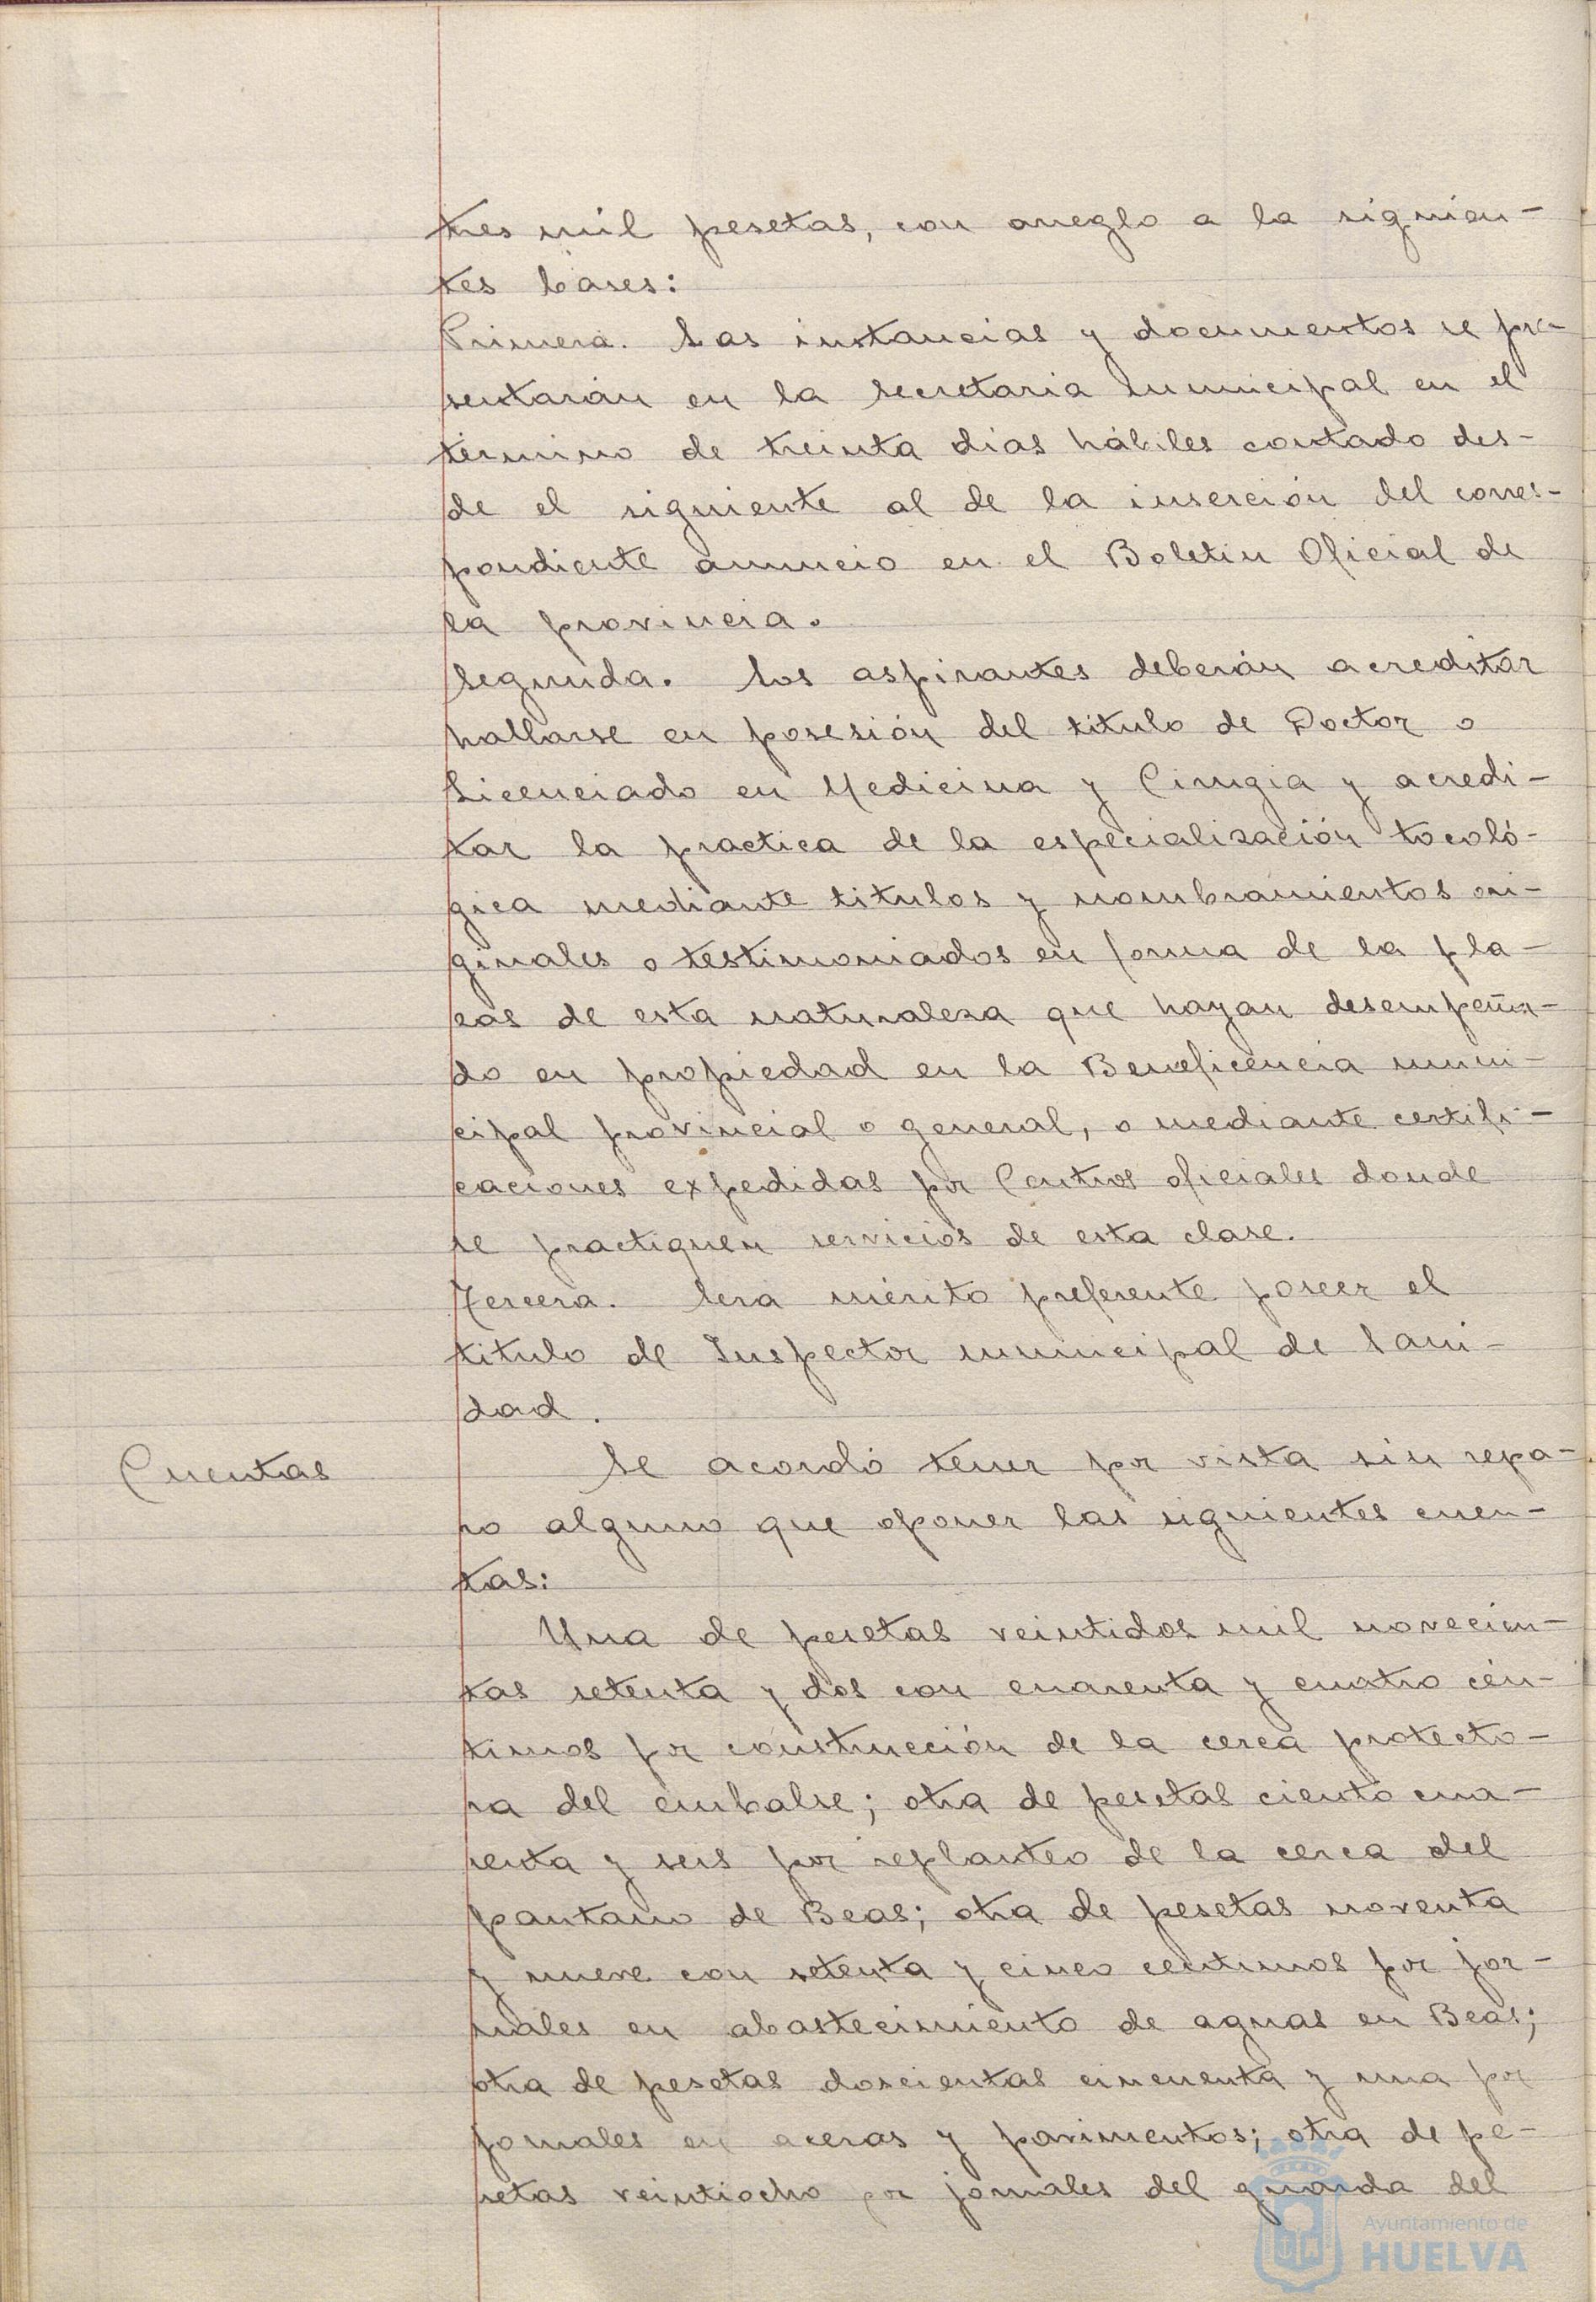 tres mil pesetas, con arreglo a la siguien-
tes bases:
Primera. Las instancias y documentos se pre-
sentarán en la Secretaria Municipal en el
término de treinta dias hábiles contado des-
de el siguiente al de la inserción del corres-
pondiente anuncio en el Boletin Oficial de
la provincia.
Segunda. Los aspirantes deberán acreditar
hallarse en posesión del titulo de Doctor o
Licenciado en Medicina y Cirugia y acredi-
tar la practica de la especialización tocoló-
gica mediante titulos y nombramientos ori-
ginales o testimoniados en forma de la pla-
zas de esta naturaleza que hayan desempeña-
do en propiedad en la Beneficencia muni-
cipal provincial o general, o mediante certifi-
caciones expedidas por Centros oficiales donde
se practiquen servicios de esta clase.
Tercera. Sera mérito preferente poseer el
titulo de Inspector municipal de Sani-
dad.
Cuentas
Se acordó tener por vista sin repa-
ro alguno que oponer las siguientes cuen-
tas:
Una de pesetas veintidos mil novecien-
tas setenta y dos con cuarenta y cuatro cén-
timos por construcción de la cerca protecto-
ra del embalse; otra de pesetas ciento cua-
renta y seis por replanteo de la cerca del
pantano de Beas; otra de pesetas noventa
y nueve con setenta y cinco centimos por jor-
nales en abastecimiento de aguas en Beas;
otra de pesetas doscientas cincuenta y una por
jornales en aceras y pavimentos; otra de pe-
setas veintiocho por jornales del guarda del
Ayuntamiento de
HUELVA